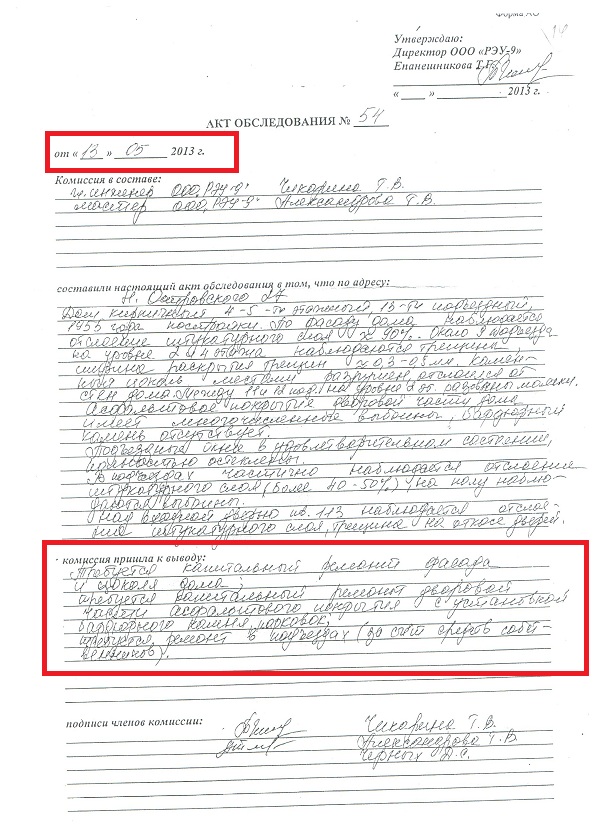 Форма АО
Утверждаю:
Директор ООО «РЭУ-9»
Епанешникова Т.Г.
« » 2013 г.
АКТ ОБСЛЕДОВАНИЯ № 54
от « 13 » 05 2013 г.
Комиссия в составе:
гл. инженер ООО „РЭУ-9" Чикарина Т.В.
мастер ООО „РЭУ-9" Александрова Т.В.
составили настоящий акт обследования в том, что по адресу:
Н. Островского 27
Дом кирпичный 4-5-ти этажный 13-ти подъездный,
1953 года постройки. По фасаду дома наблюдается
отслоение штукатурного слоя ≈ 90%. Окало 9 подъезда
на уровне 2 и 4 этажа наблюдаются трещины,
ширина раскрытия трещин ≈ 0,3-0,5 мм. Камен-
ный цоколь местами разрушен отслоился от
стен дома. Между 11 и 12 под. на уровне 2 эт.
Асфальтовое покрытие дворовой части дома
имеет многочисленные выбоины, бордюрный
камень отсутствует.
Подъездные окна в удовлетворительном состоянии,
полностью остеклены.
В подъездах частично наблюдается отслоение
штукатурного слоя (более 40-50%) на полу наблю-
даются выбоины.
Над входной дверью кв. 113 наблюдается отслое-
ние штукатурного слоя, трещина на откосе дверей.
комиссия пришла к выводу:
Требуется капитальный ремонт фасада
и цоколя дома;
требуется капитальный ремонт дворовой
части асфальтового покрытия установкой
бардюрного камня, парковок;
требуется ремонт в подъездах (за счет средств собст-
венников).
подписи членов комиссии:
Чикарина Т.В.
Александрова Т.В.
Черных Д.С.